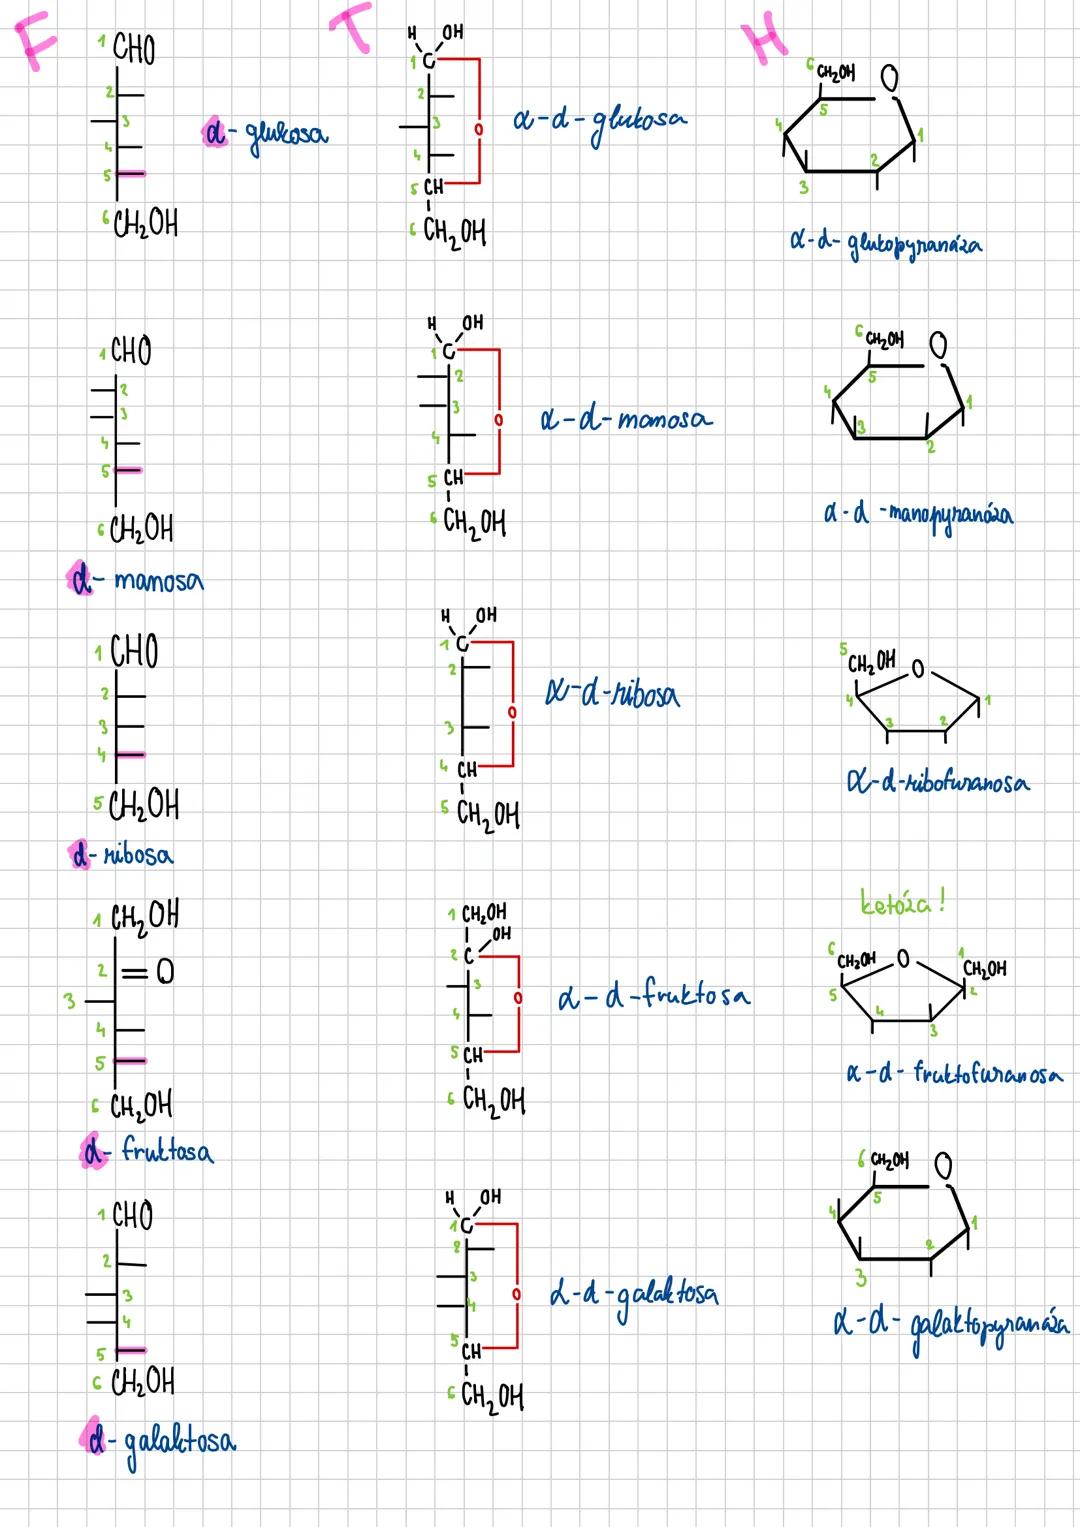 F T H
1 CHO
2
3
4
5
6 CH₂OH
d-glukosa
H OH
1 C
2
3
4
O
5 CH
6 CH₂OH
α-d-glukosa
6 CH₂OH O
5
4 1
2
3
α-d-glukopyranóza
1 CHO
2
3
4
5
6 CH₂OH
d-manosa
H OH
1 C
2
3
O
4
5 CH
6 CH₂OH
α-d-manosa
6 CH₂OH O
5
4 1
3
2
α-d-manopyranóza
1 CHO
2
3
4
5 CH₂OH
d-ribosa
H OH
1 C
2
O
3
4 CH
5 CH₂OH
α-d-ribosa
5
CH₂OH O
4 1
3 2
α-d-ribofuranosa
1 CH₂OH
2 = O
3
4
5
6 CH₂OH
d-fruktosa
1 CH₂OH
OH
2 C
3
O
4
5 CH
6 CH₂OH
α-d-fruktosa
ketóza!
6 1
CH₂OH O CH₂OH
5 2
4
3
α-d-fruktofuranosa
1 CHO
2
3
4
5
6 CH₂OH
d-galaktosa
H OH
1 C
2
3
O
4
5
CH
6 CH₂OH
α-d-galaktosa
6 CH₂OH O
5
4 1
2
3
α-d-galaktopyranóza